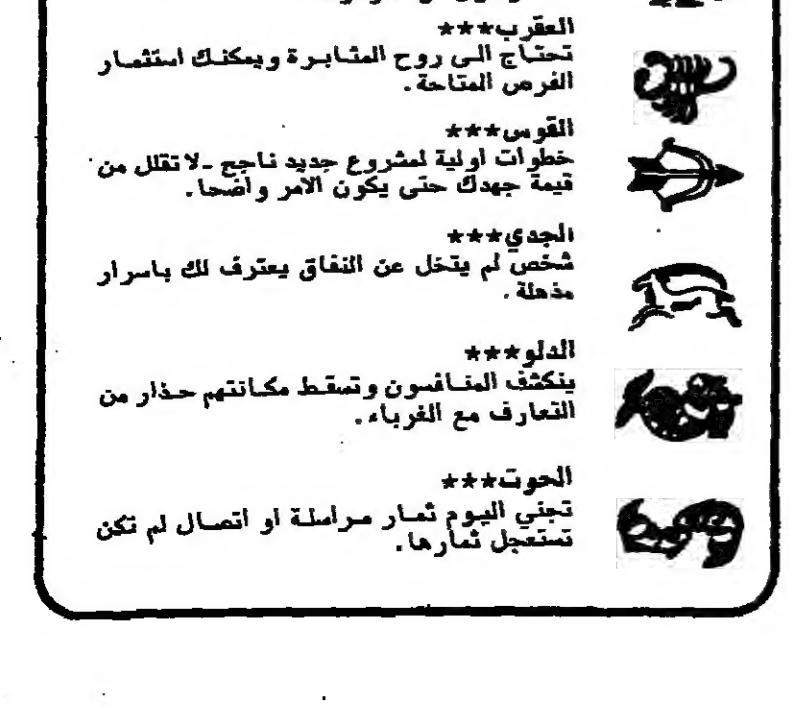 العقرب***
تحتاج الى روح المثابرة ويمكنك استثمار
الفرص المتاحة.
القوس***
خطوات اولية لمشروع جديد ناجح -لا تقلل من
قيمة جهدك حتى يكون الامر واضحا.
الجدي***
شخص لم يتخل عن النفاق يعترف لك باسرار
مذهلة.
الدلو***
ينكشف المنافسون وتسقط مكانتهم حذار من
التعارف مع الغرباء.
الحوت***
تجني اليوم ثمار مراسلة او اتصال لم تكن
تستعجل ثمارها.